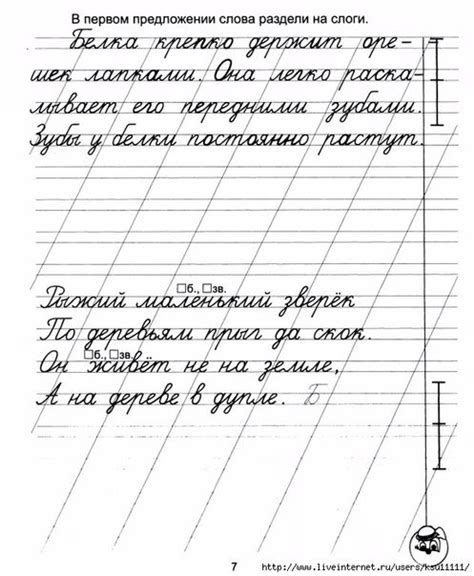 В первом предложении слова раздели на слоги.
Белка крепко держит оре-
шек лапками. Она легко раска-
лывает его передними зубами.
Зубы у белки постоянно растут.
□б., □зв.
Рыжий маленький зверёк
По деревьям прыг да скок.
□б., □зв.
Он живёт не на земле,
А на дереве в дупле. Б
7
http://www.liveinternet.ru/users/ksu11111/